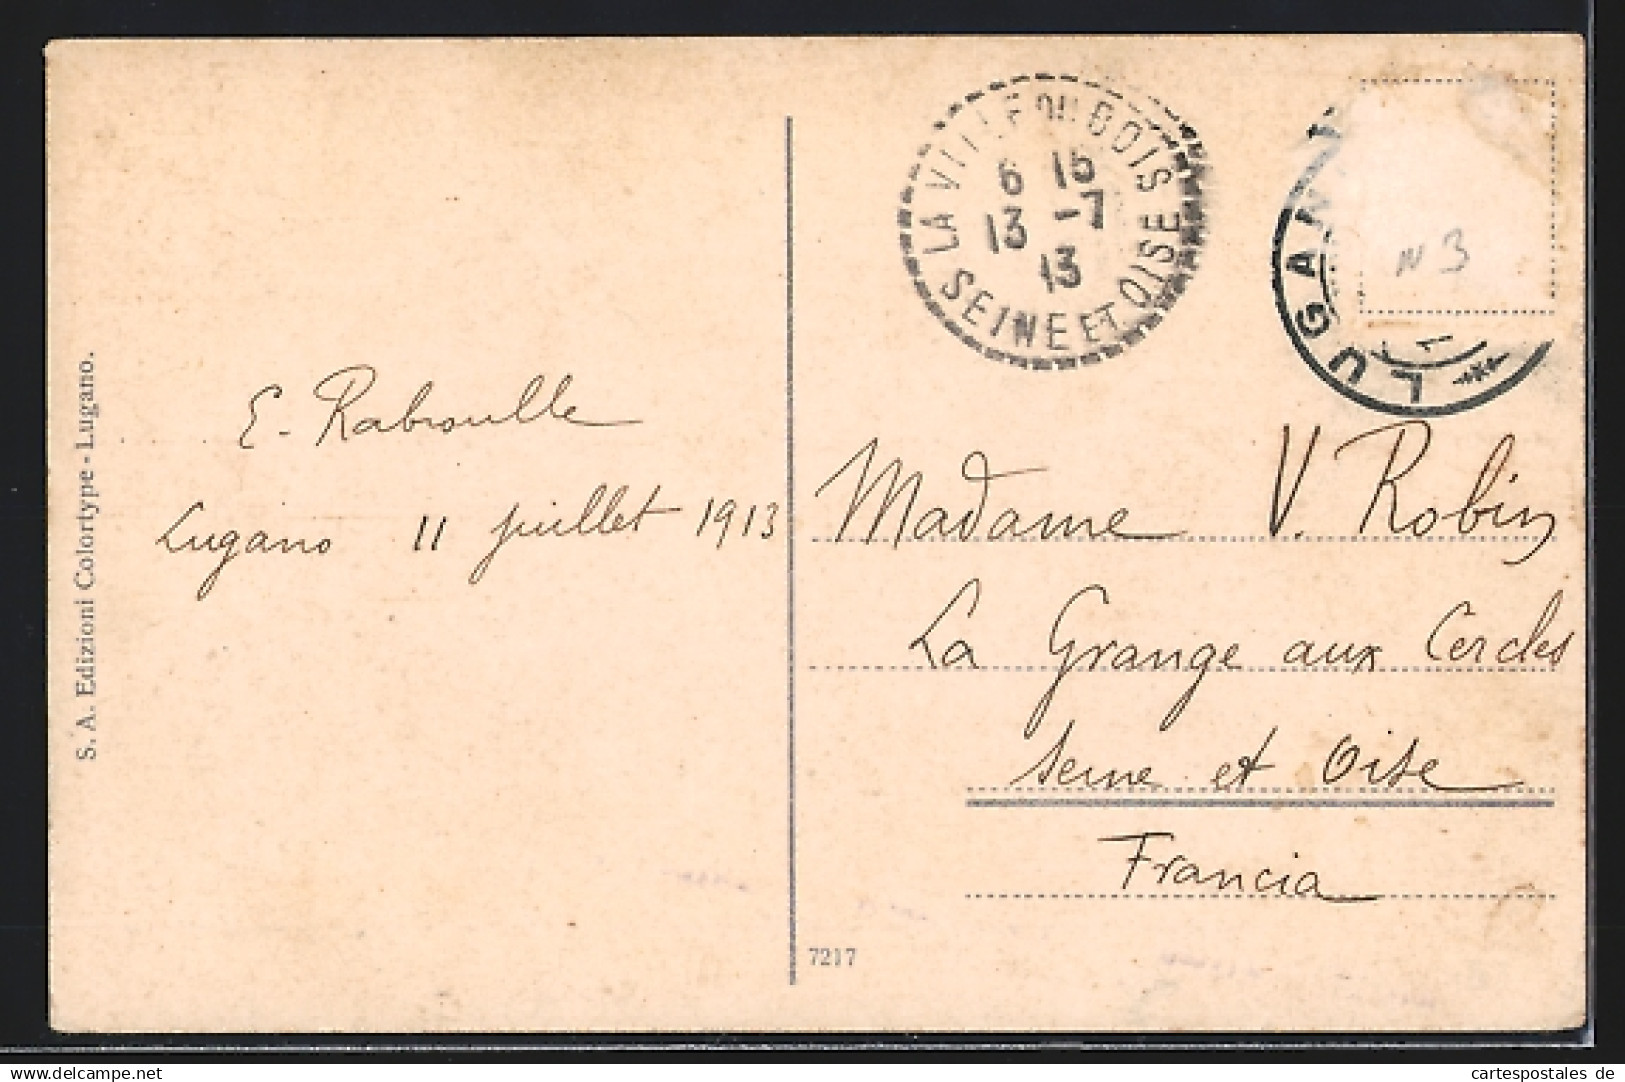 S. A. Edizioni Colortype - Lugano.
E. Rabroulle
Lugano 11 juillet 1913
LA VILLE DU BOIS
6 15
13 -7
13
SEINE ET OISE
LUGAN
1
N 3
Madame V. Robin
La Grange aux Cercles
Seine et Oise
Francia
7217
delcampe.net
cartespostales de